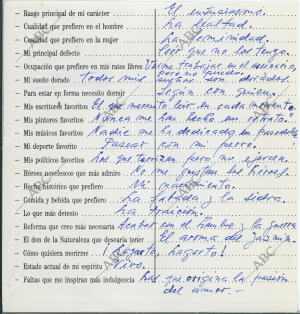 — Rasgo principal de mi carácter El entusiasmo.
— Cualidad que prefiero en el hombre La lealtad.
— Cualidad que prefiero en la mujer La feminidad.
— Mi principal defecto Creer que no los tengo.
— Ocupación que prefiero en mis ratos libres trabajar en el ocio,
pero no puedo.
— Mi sueño dorado Todos mis sueños son dorados.
— Para estar en forma necesito dormir Según con quien.
— Mis escritores favoritos El que necesito leer en cada momento
— Mis pintores favoritos Nunca me han hecho un retrato.
— Mis músicos favoritos Nadie me ha dedicado un pasodoble
— Mi deporte favorito Pasear con mi perro.
— Mis políticos favoritos Los que pero no ejercen.
— Héroes novelescos que más admiro No me gustan los héroes.
— Hecho histórico que prefiero Mi nacimiento.
— Comida y bebida que prefiero La fabada y la sidra.
— Lo que más detesto La traición.
— Reforma que creo más necesaria Acabar con el hambre y la guerra
— El don de la Naturaleza que desearía tener El aroma del jazmín.
— Cómo quisiera morirme ¡Lagarto, lagarto!
— Estado actual de mi espíritu Vivo.
— Faltas que me inspiran más indulgencia Las que origina la pasión
del amor.—
ABC